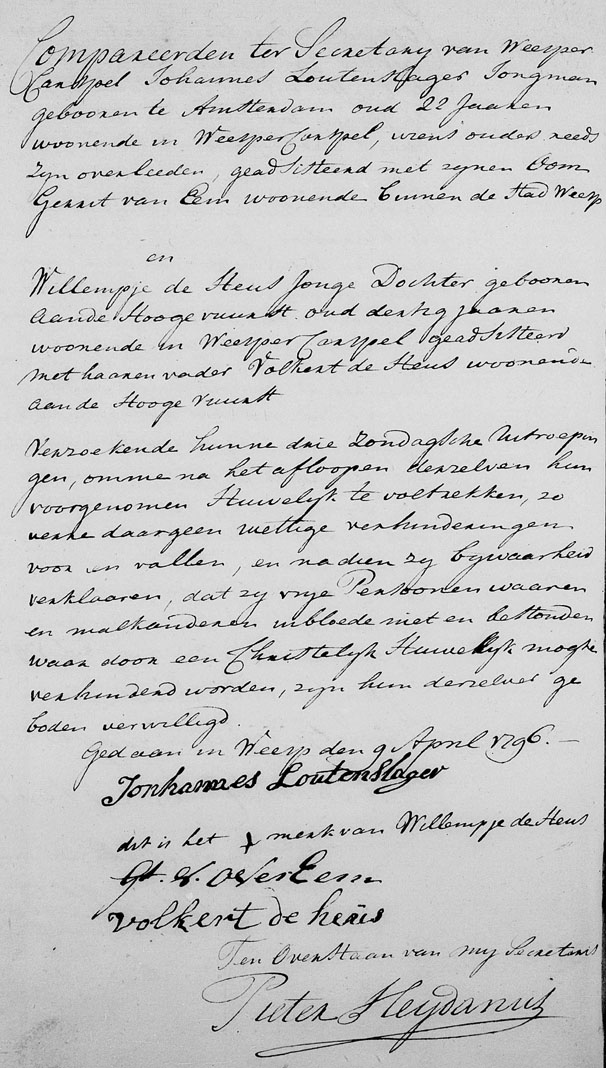 Compareerden ter Secretary van Weesper
Carspel Johannes Loutenslager Jongman
gebooren te Amsterdam oud 22 Jaaren
woonende in WeesperCarspel, wiens ouders reeds
zyn overleeden, geadsisteerd met zynen Oom
Gerrit van Eem woonende binnen de Stad Weesp
en
Willempje de Heus Jonge Dochter gebooren
aande Hooge vuurst oud dertig jaaren
woonende in WeesperCarspel geadsisteerd
met haaren vader Volkert de Heus woonende
aande Hooge vuurst
Verzoekende hunne drie Zondagsche Uitroepin
gen, omme na het afloopen derzelven hun
voorgenomen Huwelyk te voltrekken, zo
verre daar geen wettige verhinderingen
voor en vallen, en nadien zy bywaarheid
verklaaren, dat zy vrye Persoonen waaren
en malkanderen inbloede niet en bestonden
waar door een Christelyk Huwelyk moghte
verhinderd worden, zyn hun derzelver ge
boden verwilligd.
Gedaan in Weesp den 9 April 1796. –
Jonhannes Loutenslager
dit is het x merk van Willempje de Heus
Gt. V. OverEem
volkert de heus
Ten Overstaan van my Secretaris
Pieter Heydanus